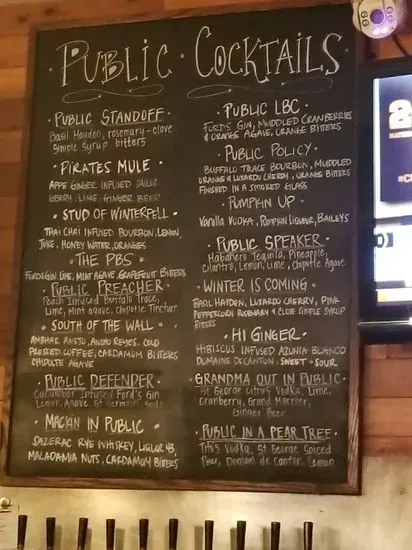 PUBLIC COCKTAILS
PUBLIC STANDOFF
Basil Hayden, rosemary-clove
Simple syrup bitters
PIRATES MULE
APPE GINGER INFUSED SAILOR
JERRY, LIME, GINGER BEER
STUD OF WINTERFELL
THAI CHAI INFUSED BOURBON, LEMON,
JUICE, HONEY WATER, ORANGES
THE PBS
FORDS GIN, LIME, MINT, AGAVE, GRAPEFRUIT BITTERS
PUBLIC PREACHER
Peach Infused Buffalo Trace,
Lime, Mint agave, Chipotle Tincture
SOUTH OF THE WALL
AMBHAR ANEJO, ANCHO REYES, COLD
PRESSED COFFEE, CARDAMOM BITTERS
CHIPOTLE AGAVE
PUBLIC DEFENDER
Cucumber Infused Ford's Gin
Lemon, Agave, St Germain, Soda
MACKIN IN PUBLIC
SAZERAC RYE WHISKEY, LIQUOR 43,
MACADAMIA NUTS, CARDAMOM BITTERS
PUBLIC LBC
FORDS GIN, MUDDLED CRANBERRIES
& ORANGE AGAVE, ORANGE BITTERS
PUBLIC POLICY
BUFFALO TRACE BOURBON, MUDDLED
ORANGE & LUXARDO CHERRY, ORANGE BITTERS
FINISHED IN A SMOKED GLASS
PUMPKIN UP
Vanilla Vodka, Pumpkin Liqueur, Baileys
PUBLIC SPEAKER
Habanero Tequila, Pineapple,
Cilantro, Lemon, Lime, Chipotle Agave
WINTER IS COMING
BASIL HAYDEN, LUXARDO CHERRY, PINK
PEPPERCORN ROSEMARY & CLOVE SIMPLE SYRUP
BITTERS
HI GINGER
HIBISCUS INFUSED AZUNIA BLANCO
DOMAINE DECANTON, SWEET + SOUR
GRANDMA OUT IN PUBLIC
St George Citrus Vodka, Lime,
Cranberry, Grand Marnier,
Ginger Beer
PUBLIC IN A PEAR TREE
Tito's Vodka, St George Spiced
Pear, Domain de Canton, Lemon
2